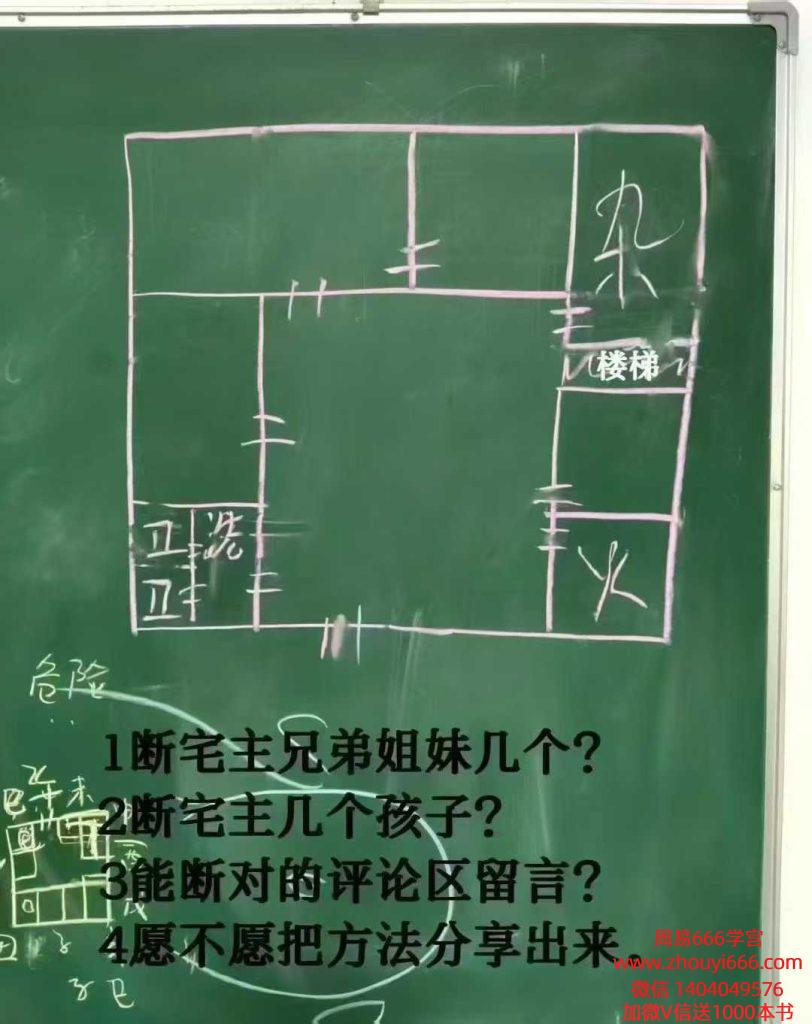 杂
楼梯
卫 洗
卫
火
危险
1断宅主兄弟姐妹几个?
2断宅主几个孩子?
3能断对的评论区留言?
4愿不愿把方法分享出来.
周易666学宫
www.zhouyi666.com
微信 1404049576
加微V信送1000本书